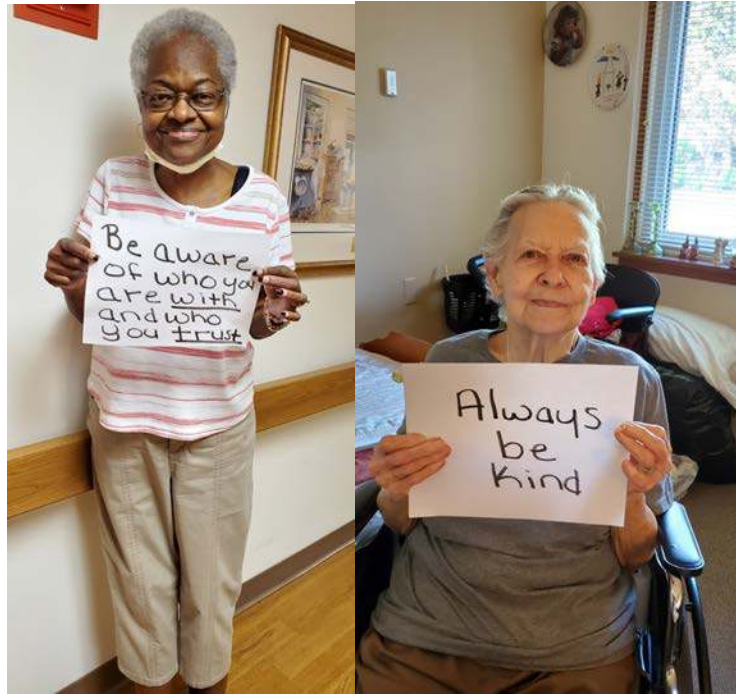 Be aware
of who you
are with
and who
you trust
Always
be
Kind